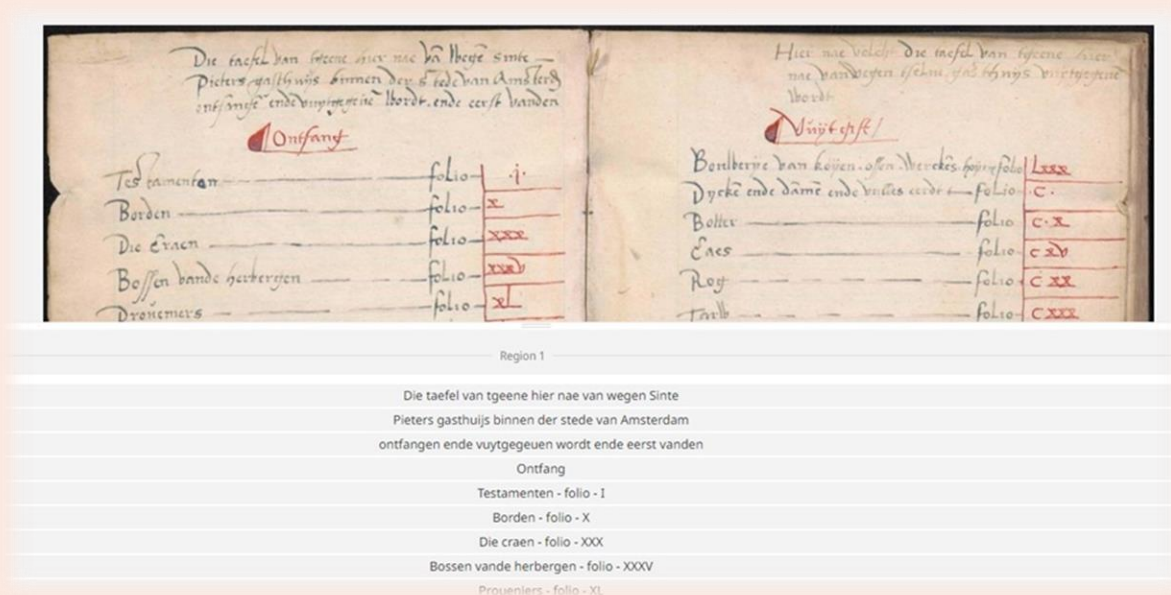 Die taefel van tgeene hier nae vā wegē sinte
Pieters gasthuijs binnen der stede van Amsterd
ontfangē ende vuytgegeuē wordt. ende eerst vanden
Ontfang
Testamenten folio .i.
Borden folio x
Die Craen folio xxx
Bossen vande herbergen folio xxxv
Prouemers folio xL
Hier nae volcht die taefel van tgeene hier
nae van wegen tselue gasthuijs vuytgegeuē
wordt
Vuijtgift
van koijen ossen folio Lxxx
Dycke ende dāme ende folio .c.
Botter folio c.x
Caes folio c xv
Rog folio c xx
Tarw folio c xxx
Region 1
Die taefel van tgeene hier nae van wegen Sinte
Pieters gasthuijs binnen der stede van Amsterdam
ontfangen ende vuytgegeuen wordt ende eerst vanden
Ontfang
Testamenten - folio - I
Borden - folio - X
Die craen - folio - XXX
Bossen vande herbergen - folio - XXXV
Proueniers - folio - XL